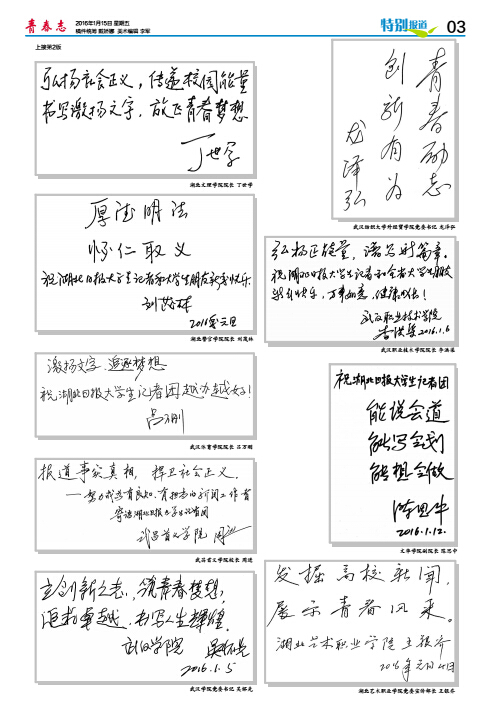 青春志
2016年1月15日 星期五
稿件统筹 戴娇娜 美术编辑 李军
特别报道
03
上接第2版
弘扬社会正义，传递校园能量
书写激扬文字，放飞青春梦想
丁世学
湖北文理学院院长 丁世学
青春励志
创新有为
龙泽弘
武汉纺织大学外经贸学院党委书记 龙泽弘
厚德明法
怀仁取义
祝湖北日报大学生记者和大学生朋友新年快乐
刘茂林
2016年元旦
湖北警官学院院长 刘茂林
弘扬正能量，谱写时篇章。
祝湖北日报大学生记者和全省大学生朋友
新年快乐，万事如意，健康成长！
武汉职业技术学院
李洪渠 2016.1.6
武汉职业技术学院院长 李洪渠
激扬文字 追逐梦想
祝湖北日报大学生记者团越办越好！
吕万刚
武汉体育学院院长 吕万刚
祝湖北日报大学生记者团
能说会道
能写会划
能想会做
陈思中
2016.1.12.
文华学院副院长 陈思中
报道事实真相，捍卫社会正义。
——努力成为有良知、有担当的新闻工作者
寄语湖北日报大学生记者团
武昌首义学院 周进
武昌首义学院校长 周进
立创新之志，筑青春梦想，
追求卓越，书写人生辉煌。
武汉学院
2016.1.5
武汉学院党委书记 吴怀光
发掘高校新闻，
展示青春风采。
湖北艺术职业学院 王银齐
2016年元月4日
湖北艺术职业学院党委宣传部长 王银齐